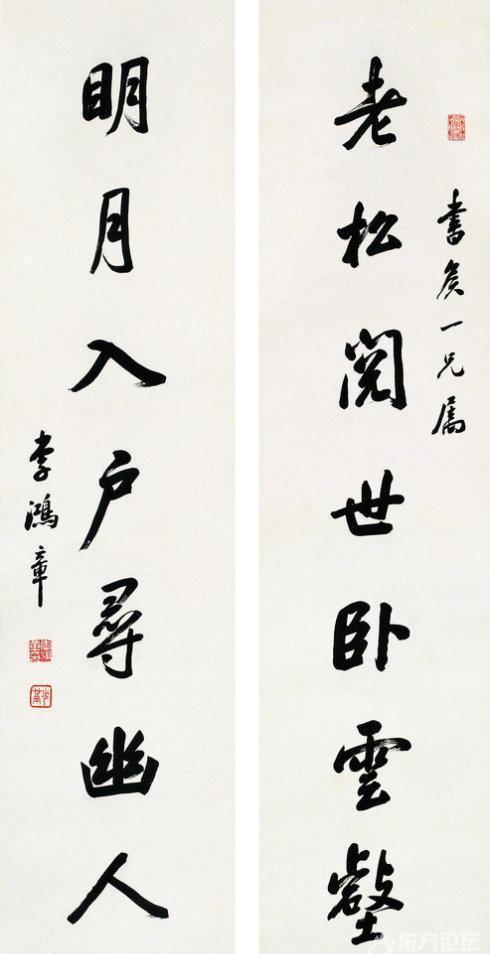 書矦一兄屬
老松閱世卧雲壑
明月入户尋幽人
李鴻章
东方论坛